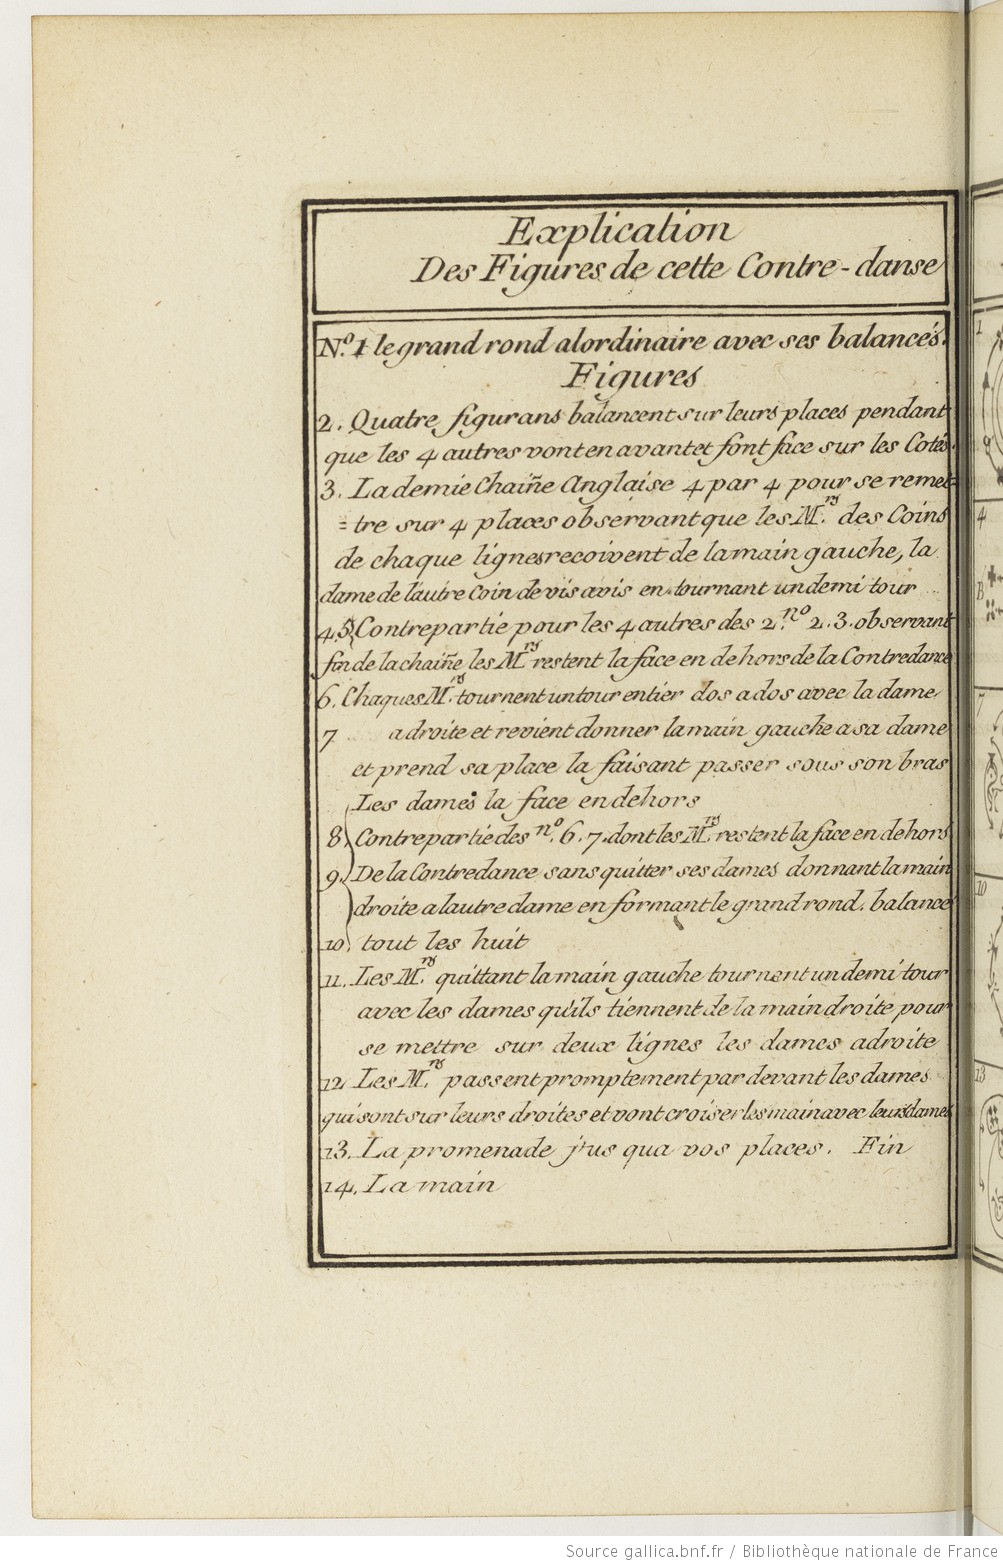 Explication
Des Figures de cette Contre-danse
N.º 1 le grand rond alordinaire avec ses balancés.
Figures
2. Quatre figurans balancent sur leurs places pendant
que les 4 autres vont en avant et font face sur les Cotés.
3. La demie Chaiñe Anglaise 4 par 4 pour se remet=
=tre sur 4 places observant que les M.rs des Coins
de chaque lignes recoivent de la main gauche, la
dame de l'autre Coin de vis avis en tournant un demi tour
4.5 Contrepartie pour les 4 autres des 2. nº 2.3. observant
fin de la chaiñe les M.rs restent la face en dehors de la Contredance
6. Chaques M.rs tournent un tour entier dos a dos avec la dame
7 a droite et revient donner la main gauche a sa dame
et prend sa place la faisant passer sous son bras
Les dames la face en dehors
8 Contrepartie des nº. 6. 7. dont les M.rs restent la face en dehors
9. De la Contredance sans quitter ses dames donnant la main
droite a lautre dame en formant le grand rond. balance
10. tout les huit
11. Les M.rs quittant la main gauche tournent un demi tour
avec les dames qu'ils tiennent de la main droite pour
se mettre sur deux lignes les dames a droite
12 Les M.rs passent promptement par devant les dames
qui sont sur leurs droites et vont croiser les main avec leurs dames
13. La promenade j'us qua vos places. Fin
14. La main
1
4
B
7
10
13
Source gallica.bnf.fr / Bibliothèque nationale de France